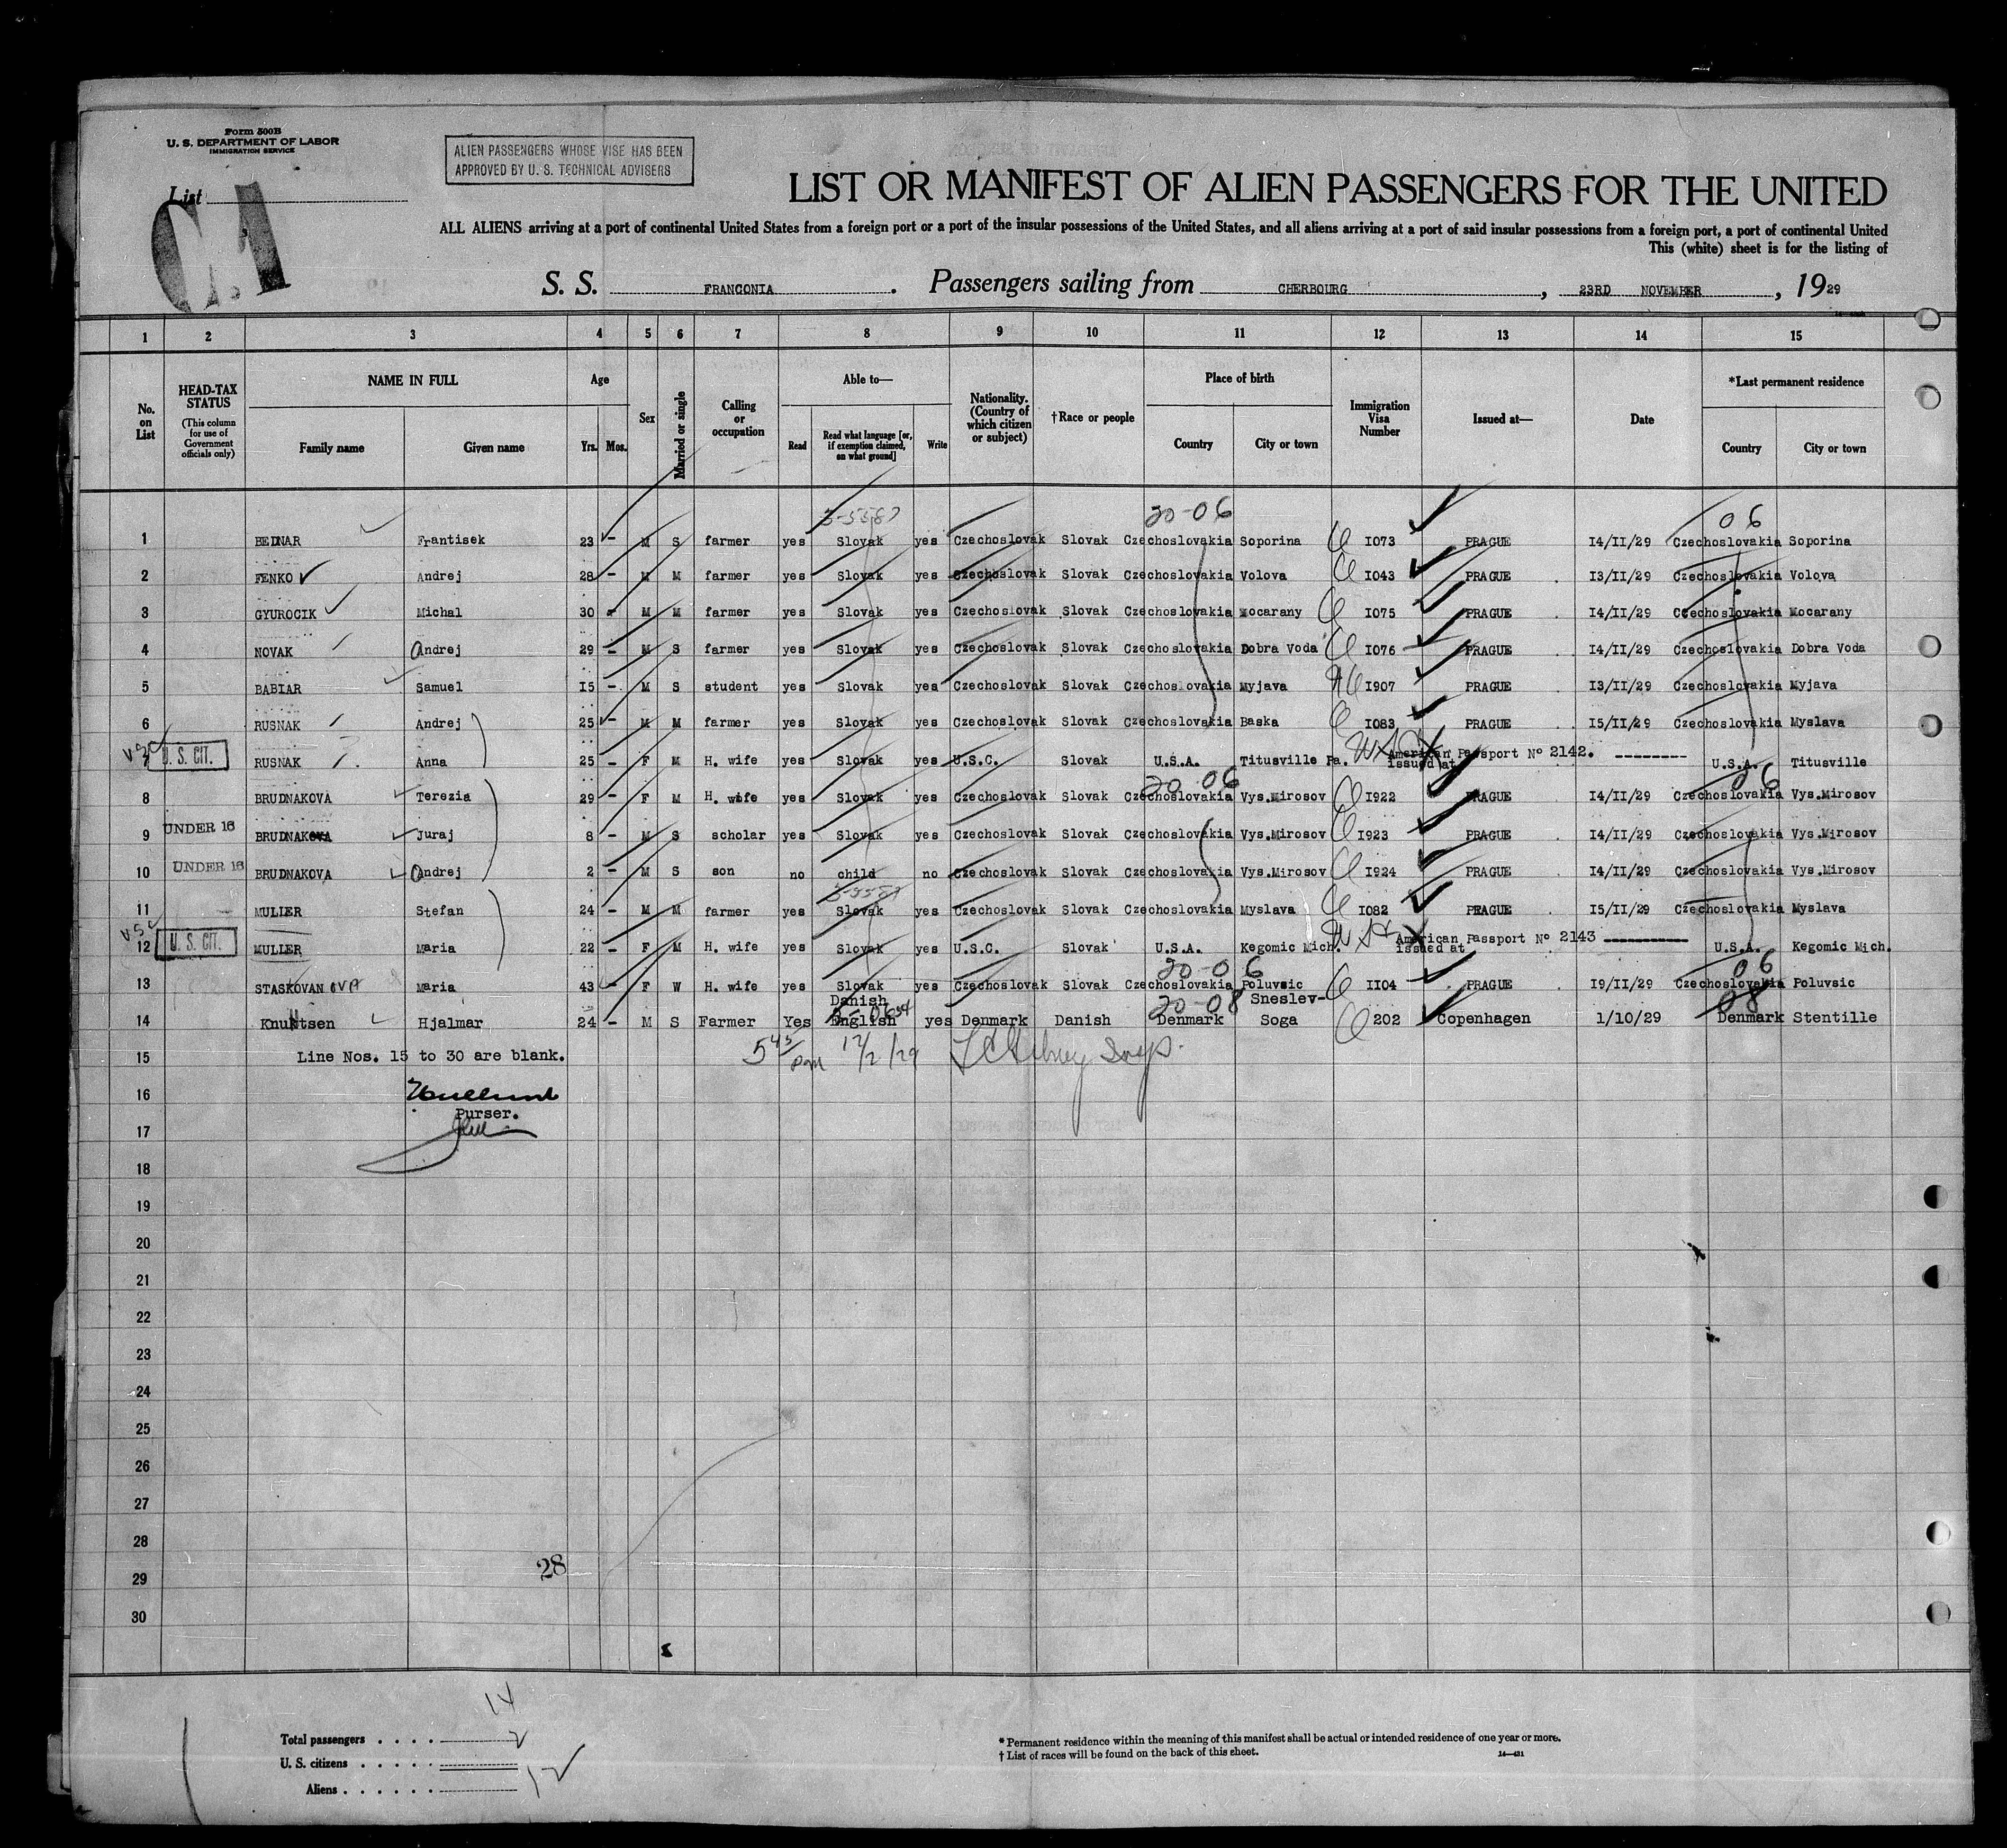 Form 500B
U. S. DEPARTMENT OF LABOR
IMMIGRATION SERVICE
ALIEN PASSENGERS WHOSE VISE HAS BEEN
APPROVED BY U. S. TECHNICAL ADVISERS
List
LIST OR MANIFEST OF ALIEN PASSENGERS FOR THE UNITED
ALL ALIENS arriving at a port of continental United States from a foreign port or a port of the insular possessions of the United States, and all aliens arriving at a port of said insular possessions from a foreign port, a port of continental United
This (white) sheet is for the listing of
S. S. FRANCONIA. Passengers sailing from CHERBOURG, 23RD NOVEMBER, 1929
1 2 3 4 5 6 7 8 9 10 11 12 13 14 15
No. on List
HEAD-TAX STATUS (This column for use of Government officials only)
NAME IN FULL Family name Given name
Age Yrs. Mos.
Sex
Married or single
Calling or occupation
Able to— Read Read what language [or, if exemption claimed, on what ground] Write
Nationality. (Country of which citizen or subject)
†Race or people
Place of birth Country City or town
Immigration Visa Number
Issued at—
Date
*Last permanent residence Country City or town
20-06 06
1 BEDNAR Frantisek 23 - M S farmer yes Slovak yes Czechoslovak Slovak Czechoslovakia Soporina I073 PRAGUE I4/II/29 Czechoslovakia Soporina
2 FENKO Andrej 28 - M M farmer yes Slovak yes Czechoslovak Slovak Czechoslovakia Volova I043 PRAGUE I3/II/29 Czechoslovakia Volova
3 GYUROCIK Michal 30 - M M farmer yes Slovak yes Czechoslovak Slovak Czechoslovakia Mocarany I075 PRAGUE I4/II/29 Czechoslovakia Mocarany
4 NOVAK Andrej 29 - M S farmer yes Slovak yes Czechoslovak Slovak Czechoslovakia Dobra Voda I076 PRAGUE I4/II/29 Czechoslovakia Dobra Voda
5 BABIAR Samuel I5 - M S student yes Slovak yes Czechoslovak Slovak Czechoslovakia Myjava I907 PRAGUE I3/II/29 Czechoslovakia Myjava
6 RUSNAK Andrej 25 - M M farmer yes Slovak yes Czechoslovak Slovak Czechoslovakia Baska I083 PRAGUE I5/II/29 Czechoslovakia Myslava
USC U. S. CIT. RUSNAK Anna 25 - F M H. wife yes Slovak yes U.S.C. Slovak U.S.A. Titusville Pa. American Passport No 2142. issued at -------- U.S.A. Titusville
20 06 06
8 BRUDNAKOVA Terezia 29 - F M H. wife yes Slovak yes Czechoslovak Slovak Czechoslovakia Vys.Mirosov I922 PRAGUE I4/II/29 Czechoslovakia Vys.Mirosov
9 UNDER 16 BRUDNAKOVA Juraj 8 - M S scholar yes Slovak yes Czechoslovak Slovak Czechoslovakia Vys.Mirosov I923 PRAGUE I4/II/29 Czechoslovakia Vys.Mirosov
10 UNDER 16 BRUDNAKOVA Andrej 2 - M S son no child no Czechoslovak Slovak Czechoslovakia Vys.Mirosov I924 PRAGUE I4/II/29 Czechoslovakia Vys.Mirosov
11 MULLER Stefan 24 - M M farmer yes Slovak yes Czechoslovak Slovak Czechoslovakia Myslava I082 PRAGUE I5/II/29 Czechoslovakia Myslava
USC
12 U. S. CIT. MULLER Maria 22 - F M H. wife yes Slovak yes U.S.C. Slovak U.S.A. Kegomic Mich. American Passport No 2143 issued at -------- U.S.A. Kegomic Mich.
20-06 06
13 STASKOVAN OVA Maria 43 - F W H. wife yes Slovak yes Czechoslovak Slovak Czechoslovakia Poluvsic II04 PRAGUE I9/II/29 Czechoslovakia Poluvsic
Danish 20-08 Sneslev- 08
14 Knuttsen Hjalmar 24 - M S Farmer Yes English yes Denmark Danish Denmark Soga 202 Copenhagen 1/10/29 Denmark Stentille
15 Line Nos. 15 to 30 are blank. 5 45/pm 12/2/29
16
Purser.
17
18
19
20
21
22
23
24
25
26
27
28
28
29
30
14
Total passengers 2
U. S. citizens
12
Aliens
* Permanent residence within the meaning of this manifest shall be actual or intended residence of one year or more.
† List of races will be found on the back of this sheet. 14—431